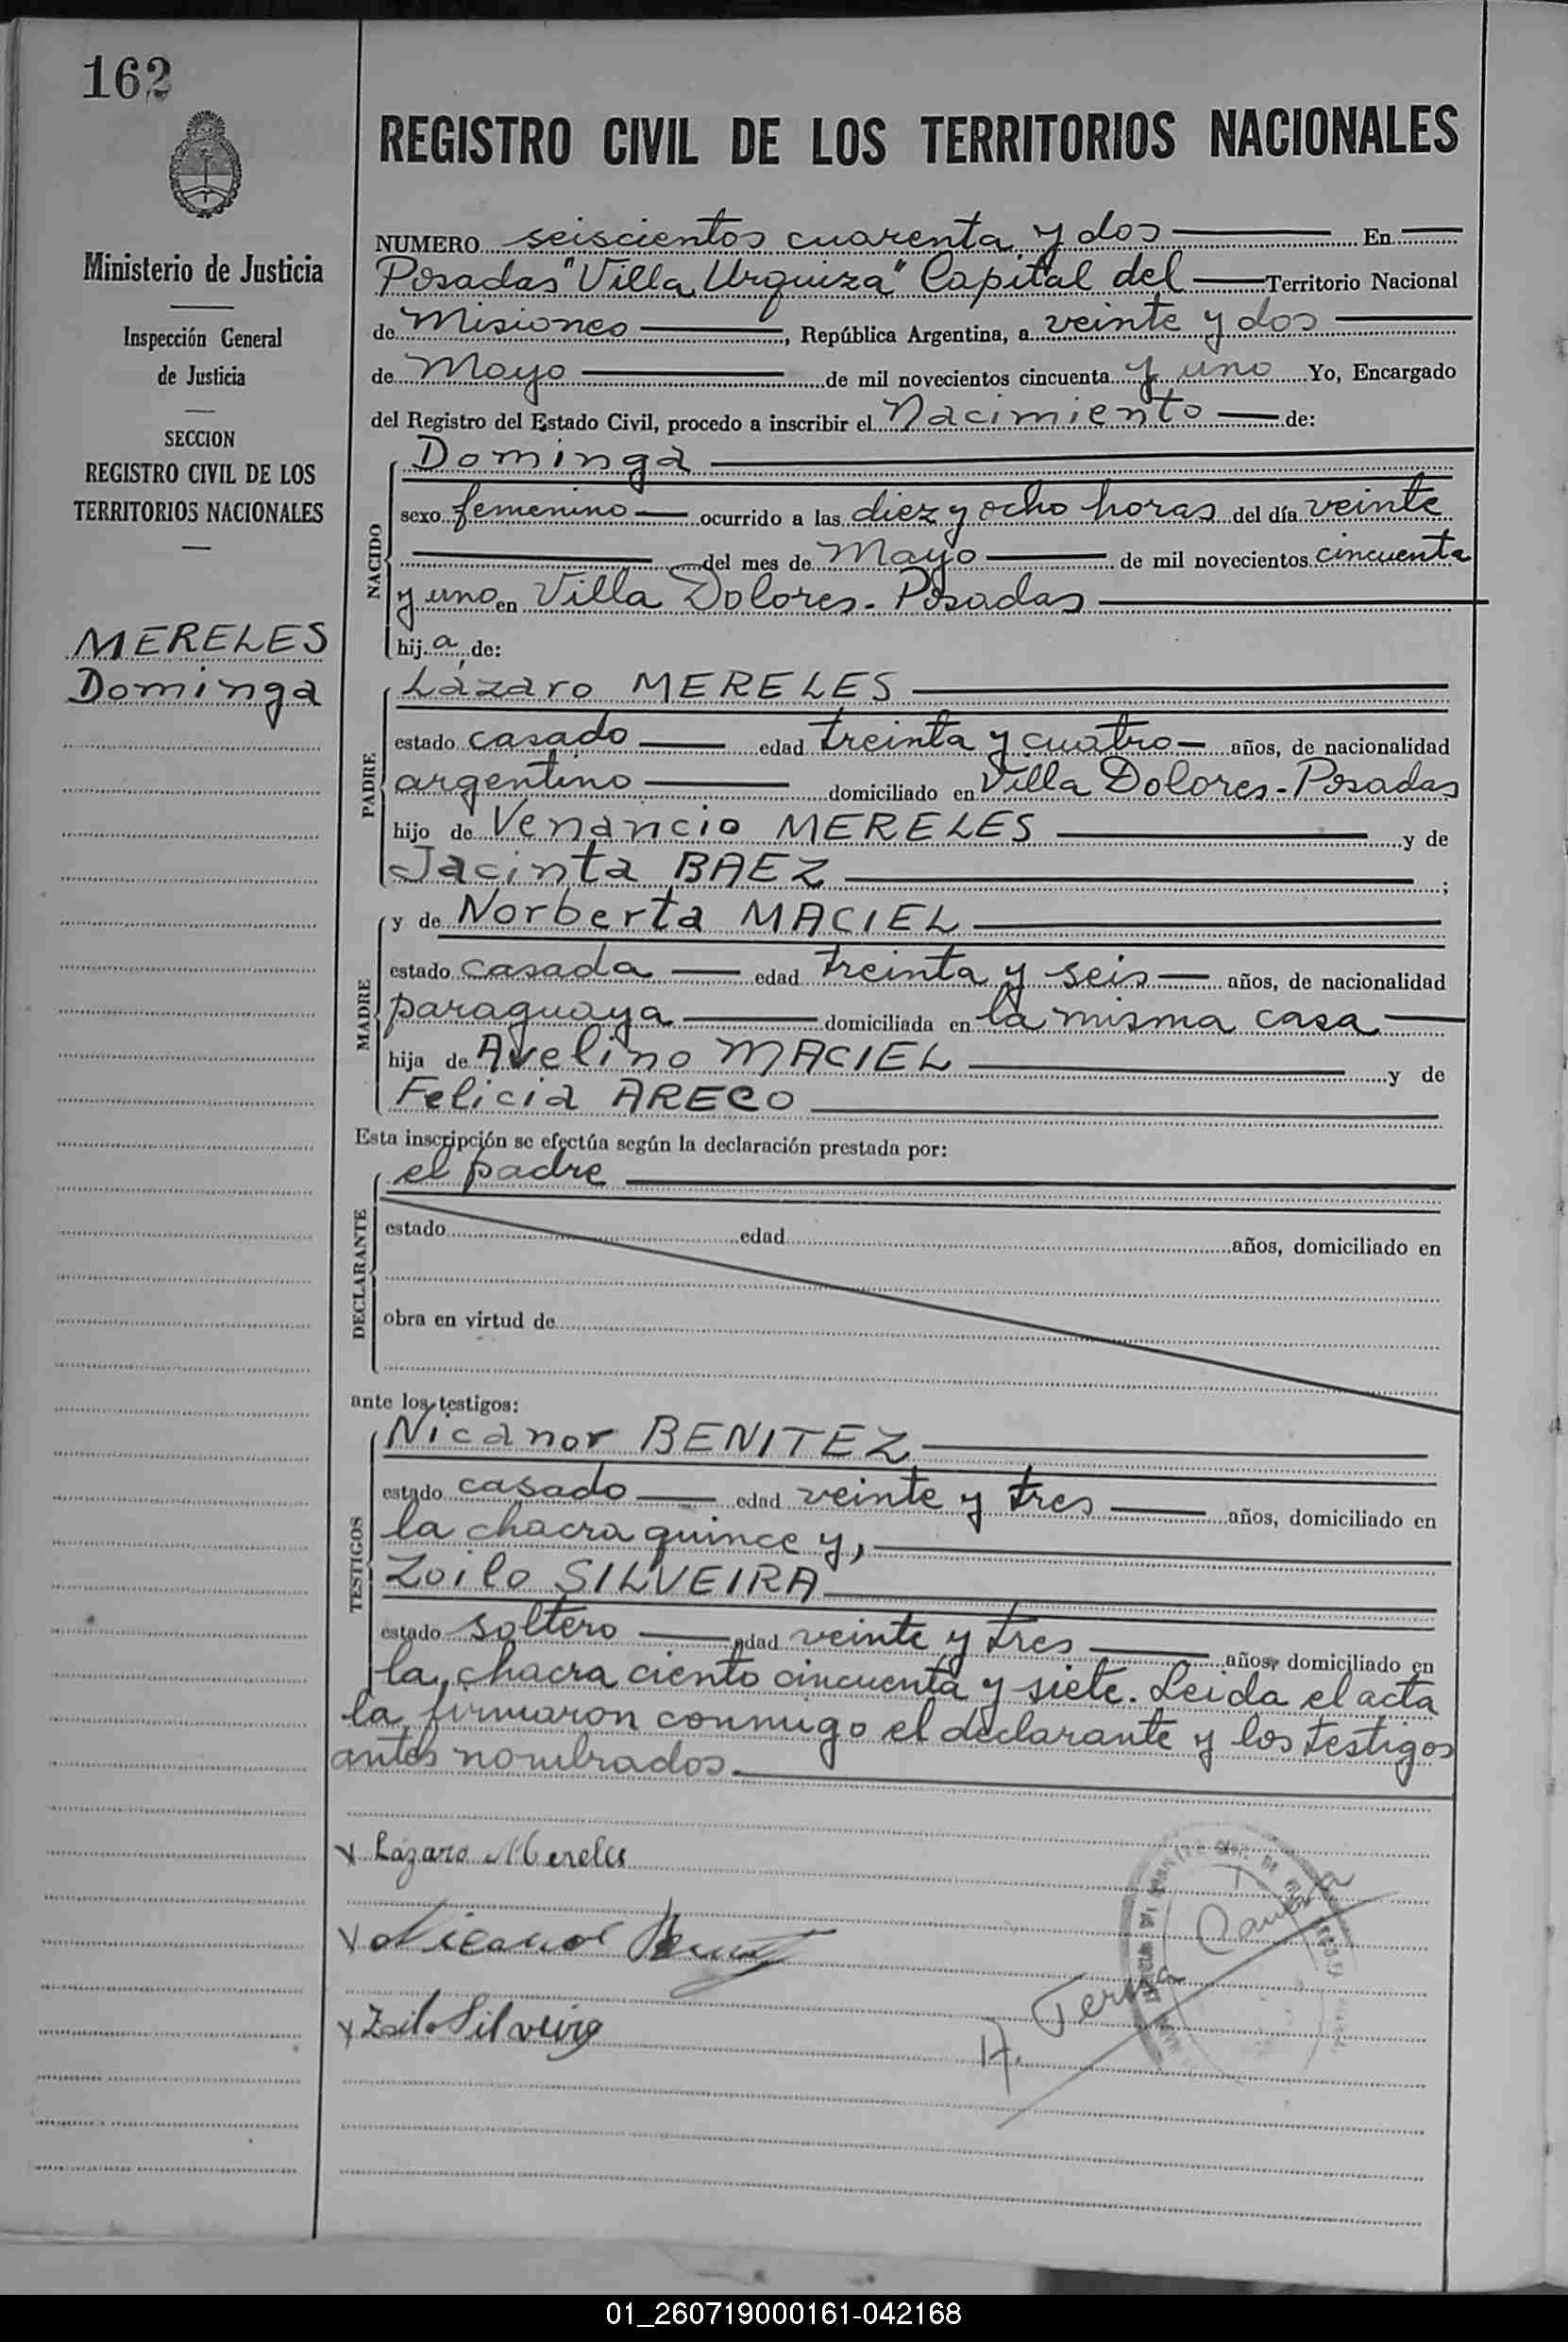 162
REGISTRO CIVIL DE LOS TERRITORIOS NACIONALES
Ministerio de Justicia
Inspección General
de Justicia
SECCION
REGISTRO CIVIL DE LOS
TERRITORIOS NACIONALES
MERELES
Dominga
NUMERO seiscientos cuarenta y dos En
Posadas "Villa Urquiza" Capital del Territorio Nacional
de Misiones, República Argentina, a veinte y dos
de Mayo de mil novecientos cincuenta y uno Yo, Encargado
del Registro del Estado Civil, procedo a inscribir el Nacimiento de:
NACIDO
Dominga
sexo femenino ocurrido a las diez y ocho horas del día veinte
del mes de Mayo de mil novecientos cincuenta
y uno en Villa Dolores - Posadas
hij a de:
PADRE
Lázaro MERELES
estado casado edad treinta y cuatro años, de nacionalidad
argentino domiciliado en Villa Dolores - Posadas
hijo de Venancio MERELES y de
Jacinta BAEZ ;
MADRE
y de Norberta MACIEL
estado casada edad treinta y seis años, de nacionalidad
paraguaya domiciliada en la misma casa
hija de Avelino MACIEL y de
Felicia ARECO
Esta inscripción se efectúa según la declaración prestada por:
DECLARANTE
el padre
estado edad años, domiciliado en
obra en virtud de
ante los testigos:
TESTIGOS
Nicanor BENITEZ
estado casado edad veinte y tres años, domiciliado en
la chacra quince y,
Zoilo SILVEIRA
estado soltero edad veinte y tres años, domiciliado en
la chacra ciento cincuenta y siete. Leida el acta
la firmaron conmigo el declarante y los testigos
antes nombrados.
x Lázaro Mereles
x Nicanor Benitez
x Zoilo Silveira
01_260719000161-042168